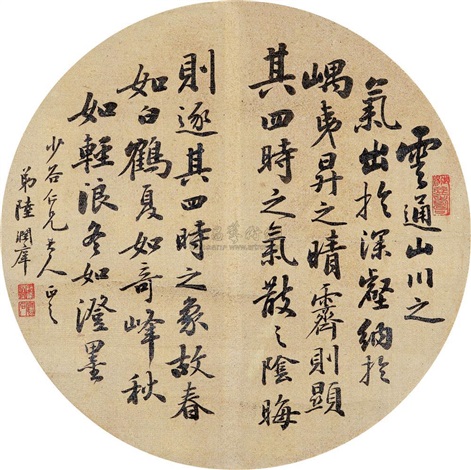 雲通山川之
氣出於深壑納於
嵎夷昇之晴霽則顯
其四時之氣散之陰晦
則逐其四時之象故春
如白鶴夏如奇峰秋
如輕浪冬如澄墨
少谷仁兄大人正之
弟陸潤庠